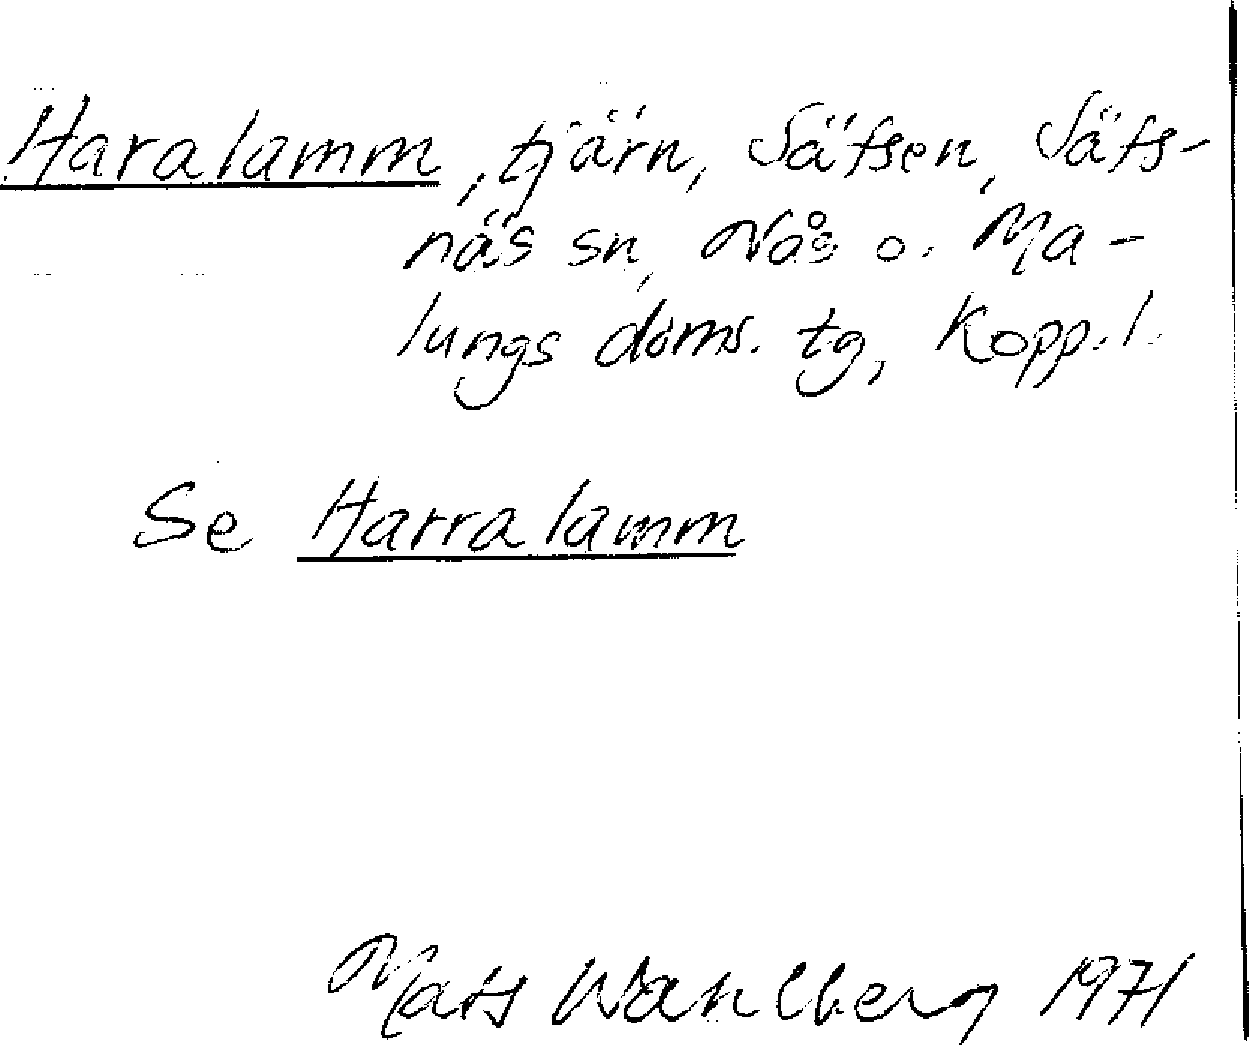 Haralamm, tjärn, Säfsen, Säfs-
näs sn, Nås o. Ma-
lungs doms. tg, Kopp. l.
Se Harralamm
Mats Wahlberg 1971